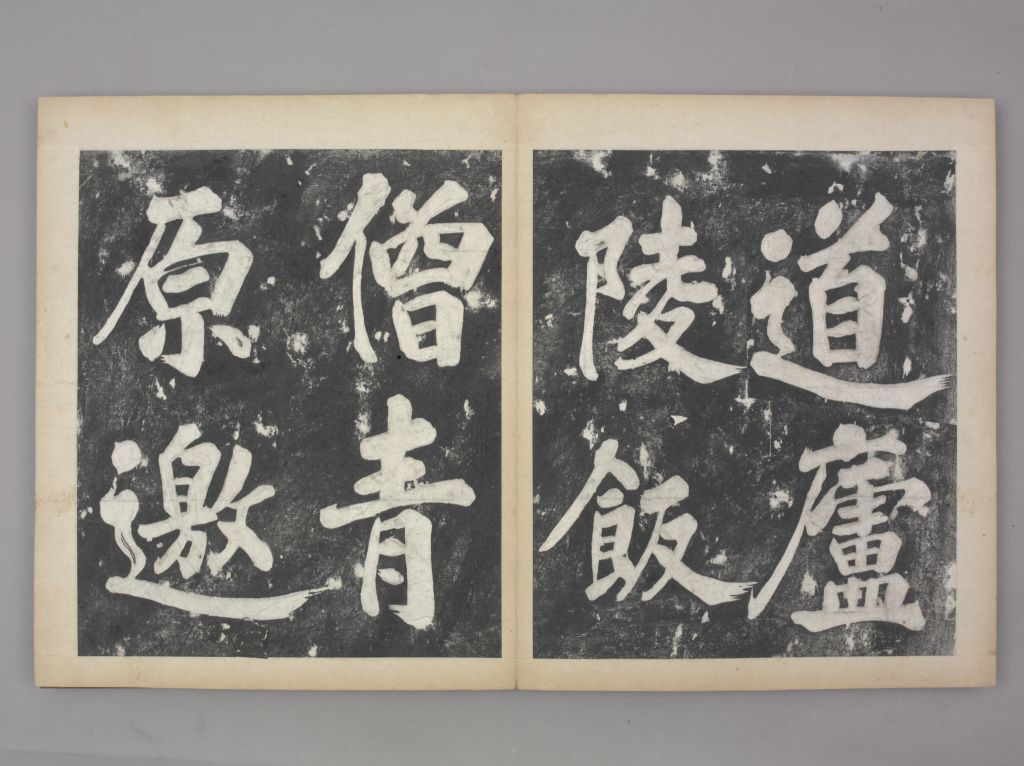 道廬
陵飯
僧青
原邀